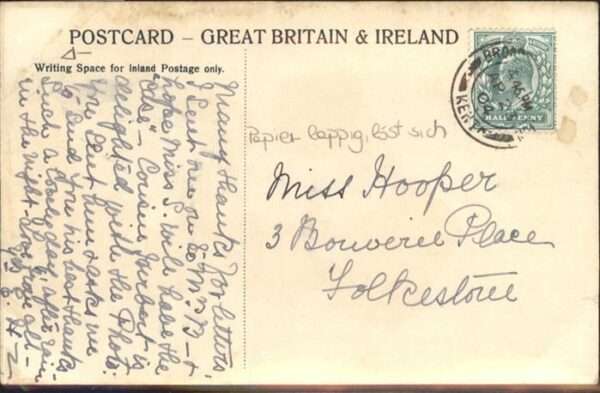 POSTCARD – GREAT BRITAIN & IRELAND
Writing Space for Inland Postage only.
Many thanks for letters.
I sent one on to Mrs B – & I
hope Miss S. will have the
– Cousin Herbert is
delighted with the Photo.
you sent him & asks me
to send you his best thanks
Such a lovely day after rain
in the night – Love to you all –
Papier lappig, löst sich
Miss Hooper
3 Bouverie Place
Folkestone
BROAD
KENT
HALFPENNY